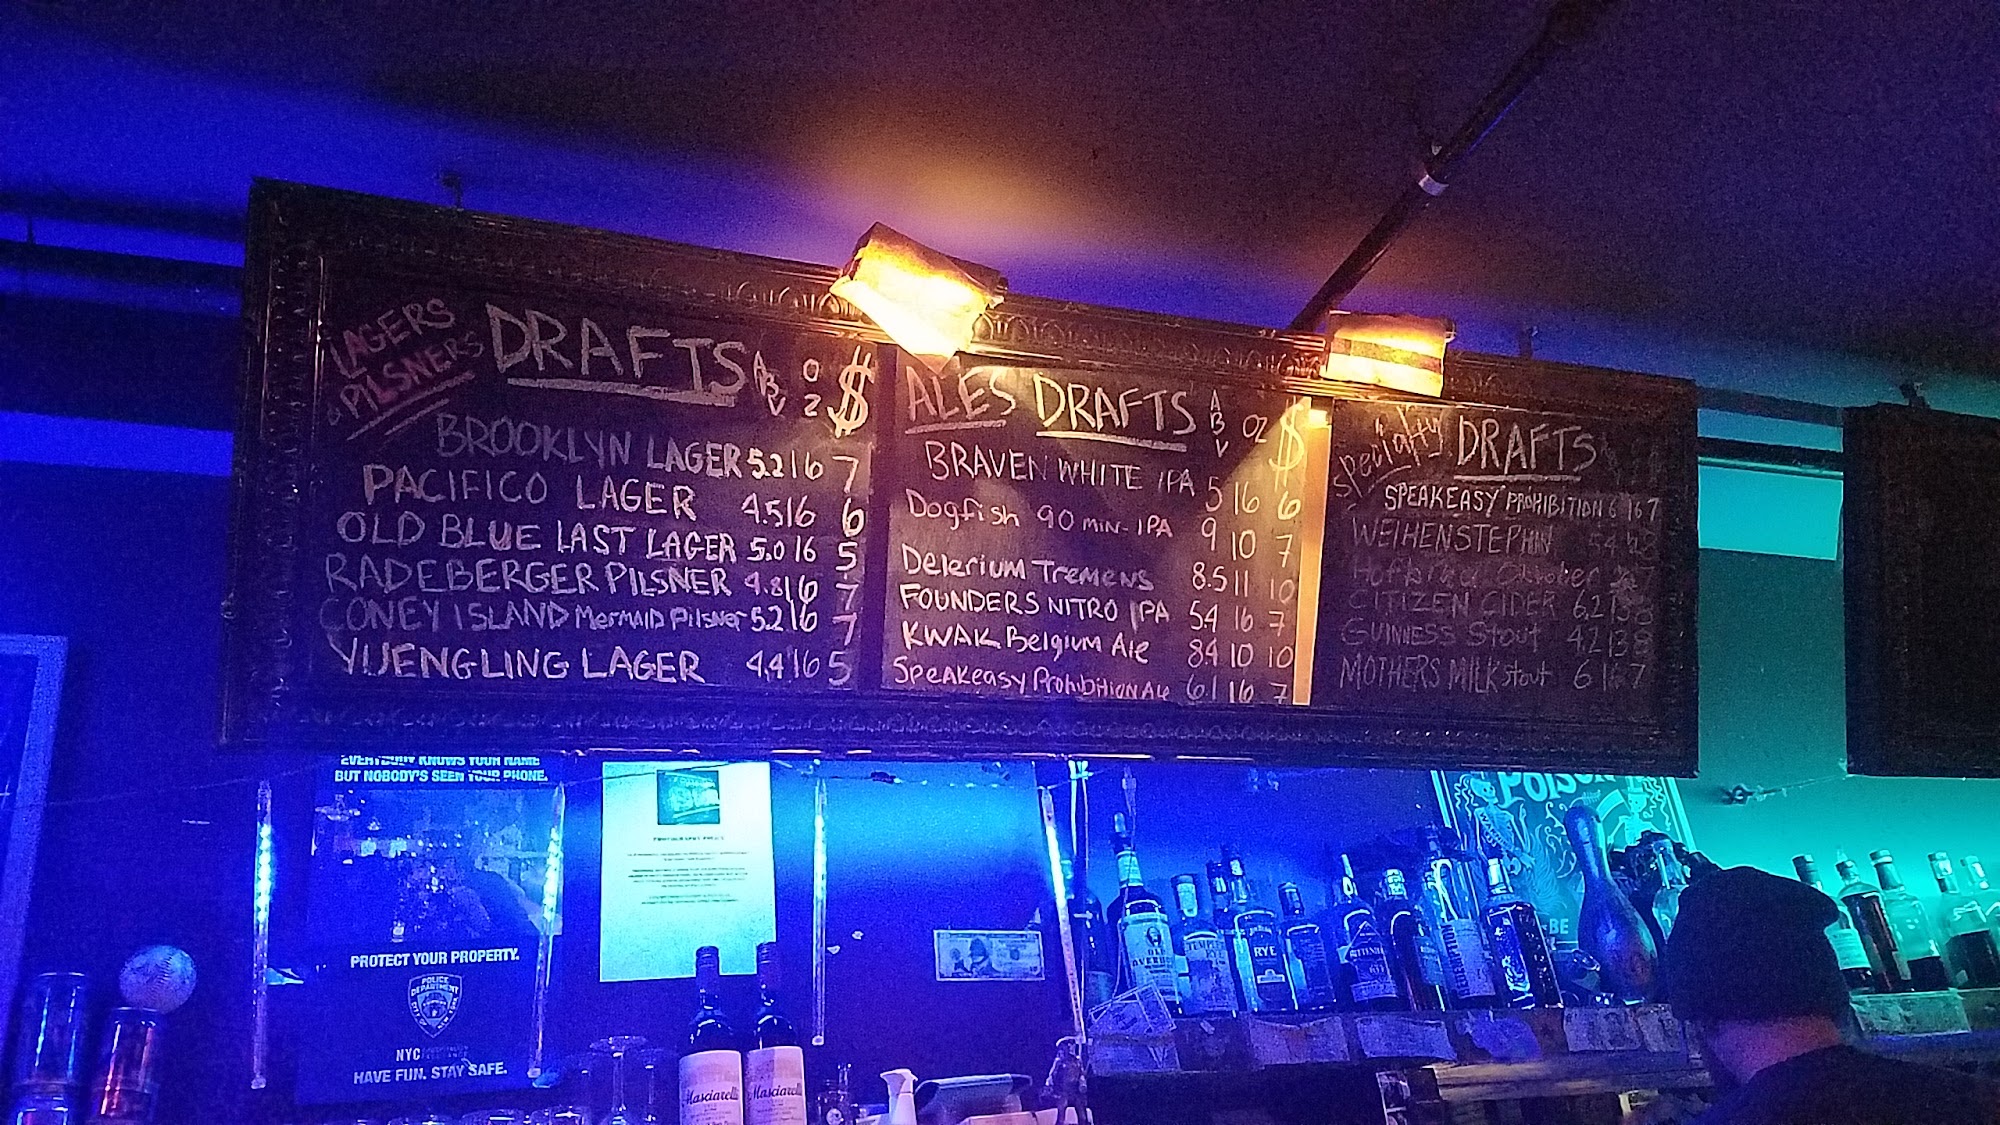 LAGERS
& PILSNERS
DRAFTS ABV OZ $
BROOKLYN LAGER 5.2 16 7
PACIFICO LAGER 4.5 16 6
OLD BLUE LAST LAGER 5.0 16 5
RADEBERGER PILSNER 4.8 16 7
CONEY ISLAND Mermaid Pilsner 5.2 16 7
YUENGLING LAGER 4.4 16 5
ALES DRAFTS ABV OZ $
BRAVEN WHITE IPA 5 16 6
Dogfish 90 MIN- IPA 9 10 7
Delerium Tremens 8.5 11 10
FOUNDERS NITRO IPA 54 16 7
KWAK Belgium Ale 84 10 10
Speakeasy Prohibition Ale 6.1 16 7
Specialty DRAFTS
SPEAKEASY PROHIBITION 6 16 7
WEIHENSTEPHN 54
CITIZEN CIDER 6.2 13 8
GUINNESS Stout 4.2 13 8
MOTHERS MILK stout 6 16 7
EVERYBODY KNOWS YOUR NAME
BUT NOBODY'S SEEN YOUR PHONE.
PROTECT YOUR PROPERTY.
POLICE
DEPARTMENT
NYC
HAVE FUN. STAY SAFE.
Masciarelli
Masciarelli
POISON
RYE